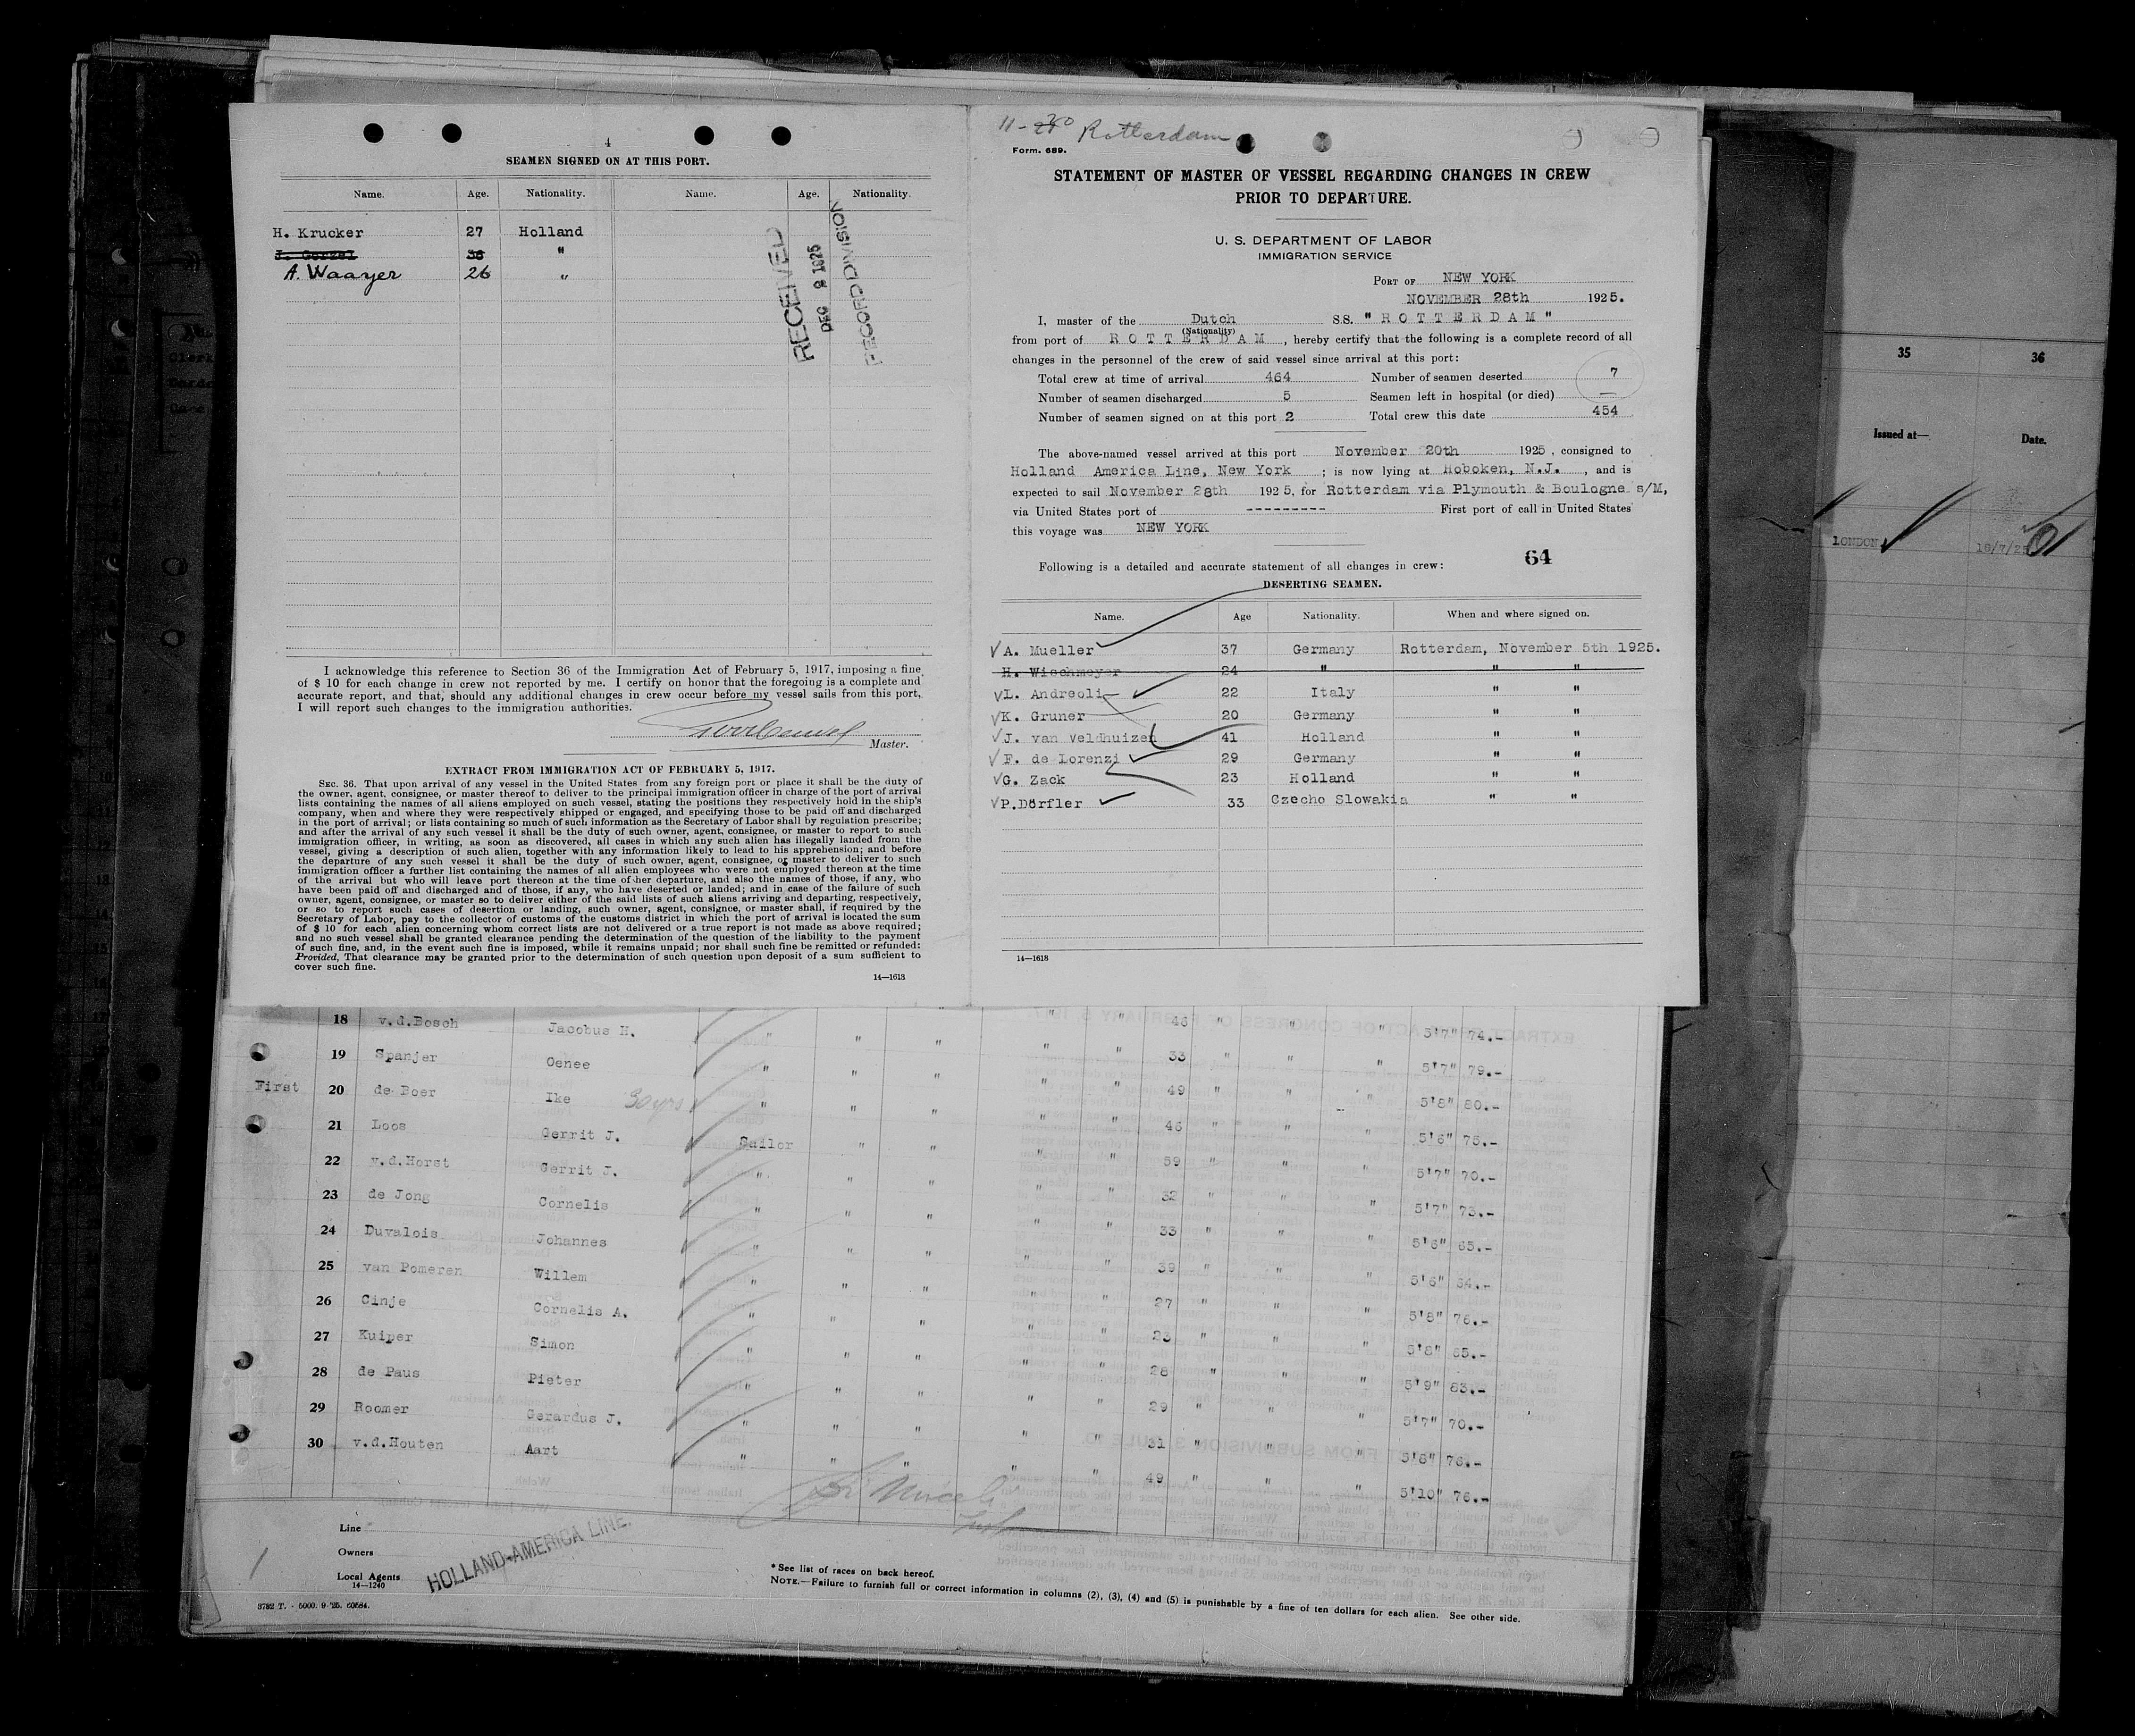 4
SEAMEN SIGNED ON AT THIS PORT.
Name. Age. Nationality. Name. Age. Nationality.
H. Krucker 27 Holland
36 "
A. Waayer 26 "
RECEIVED
DEC 8 1925
RECORD DIVISION
I acknowledge this reference to Section 36 of the Immigration Act of February 5, 1917, imposing a fine
of $ 10 for each change in crew not reported by me. I certify on honor that the foregoing is a complete and
accurate report, and that, should any additional changes in crew occur before my vessel sails from this port,
I will report such changes to the immigration authorities.
Master.
EXTRACT FROM IMMIGRATION ACT OF FEBRUARY 5, 1917.
SEC. 36. That upon arrival of any vessel in the United States from any foreign port or place it shall be the duty of
the owner, agent, consignee, or master thereof to deliver to the principal immigration officer in charge of the port of arrival
lists containing the names of all aliens employed on such vessel, stating the positions they respectively hold in the ship's
company, when and where they were respectively shipped or engaged, and specifying those to be paid off and discharged
in the port of arrival; or lists containing so much of such information as the Secretary of Labor shall by regulation prescribe;
and after the arrival of any such vessel it shall be the duty of such owner, agent, consignee, or master to report to such
immigration officer, in writing, as soon as discovered, all cases in which any such alien has illegally landed from the
vessel, giving a description of such alien, together with any information likely to lead to his apprehension; and before
the departure of any such vessel it shall be the duty of such owner, agent, consignee, or master to deliver to such
immigration officer a further list containing the names of all alien employees who were not employed thereon at the time
of the arrival but who will leave port thereon at the time of her departure, and also the names of those, if any, who
have been paid off and discharged and of those, if any, who have deserted or landed; and in case of the failure of such
owner, agent, consignee, or master so to deliver either of the said lists of such aliens arriving and departing, respectively,
or so to report such cases of desertion or landing, such owner, agent, consignee, or master shall, if required by the
Secretary of Labor, pay to the collector of customs of the customs district in which the port of arrival is located the sum
of $ 10 for each alien concerning whom correct lists are not delivered or a true report is not made as above required;
and no such vessel shall be granted clearance pending the determination of the question of the liability to the payment
of such fine, and, in the event such fine is imposed, while it remains unpaid; nor shall such fine be remitted or refunded:
Provided, That clearance may be granted prior to the determination of such question upon deposit of a sum sufficient to
cover such fine.
14—1618
Rotterdam
Form. 689.
STATEMENT OF MASTER OF VESSEL REGARDING CHANGES IN CREW
PRIOR TO DEPARTURE.
U. S. DEPARTMENT OF LABOR
IMMIGRATION SERVICE
PORT OF NEW YORK
NOVEMBER 28th 1925.
I, master of the Dutch S.S. " R O T T E R D A M "
(Nationality)
from port of R O T T E R D A M , hereby certify that the following is a complete record of all
changes in the personnel of the crew of said vessel since arrival at this port:
Total crew at time of arrival 464 Number of seamen deserted 7
Number of seamen discharged 5 Seamen left in hospital (or died) —
Number of seamen signed on at this port 2 Total crew this date 454
The above-named vessel arrived at this port November 20th 1925 , consigned to
Holland America Line, New York ; is now lying at Hoboken, N.J. , and is
expected to sail November 28th 1925, for Rotterdam via Plymouth & Boulogne s/M,
via United States port of --------- First port of call in United States
this voyage was NEW YORK
64
Following is a detailed and accurate statement of all changes in crew:
DESERTING SEAMEN.
Name. Age Nationality. When and where signed on.
A. Mueller 37 Germany Rotterdam, November 5th 1925.
H. Wischmeyer 24 " " "
L. Andreoli 22 Italy " "
K. Gruner 20 Germany " "
J. van Veldhuizen 41 Holland " "
F. de Lorenzi 29 Germany " "
G. Zack 23 Holland " "
P.Dörfler 33 Czecho Slowakia " "
14—1618
35 36
Issued at— Date.
LONDON
18 v.d.Bosch Jacobus H. " " " " " 46 " " " 5'7" 74.-
19 Spanjer Oenee " " " " " 33 " " " 5'7" 79.-
First 20 de Boer Ike 30 yrs " " " " " 49 " " " 5'8" 80.-
21 Loos Gerrit J. Sailor " " " " 46 " " " 5'6" 75.-
22 v.d.Horst Gerrit J. " " " " 59 " " " 5'7" 70.-
23 de Jong Cornelis " " " " " 32 " " " 5'7" 73.-
24 Duvalois Johannes " " " " " 33 " " " 5'6" 65.-
25 van Pomeren Willem " " " " " 39 " " " 5'6" 64.-
26 Cinje Cornelis A. " " " " " 27 " " " 5'8" 76.-
27 Kuiper Simon " " " " " 23 " " " 5'8" 65.-
28 de Paus Pieter " " " " " 28 " " " 5'9" 83.-
29 Roomer Gerardus J. " " " " " 29 " " " 5'7" 70.-
30 v.d.Houten Aart " " " " " 31 " " " 5'8" 76.-
49 " " " 5'10" 76.-
Line
Owners
Local Agents
14—1240
HOLLAND-AMERICA LINE.
*See list of races on back hereof.
NOTE.—Failure to furnish full or correct information in columns (2), (3), (4) and (5) is punishable by a fine of ten dollars for each alien. See other side.
3782 T. - 5000. 9-'25. 60584.